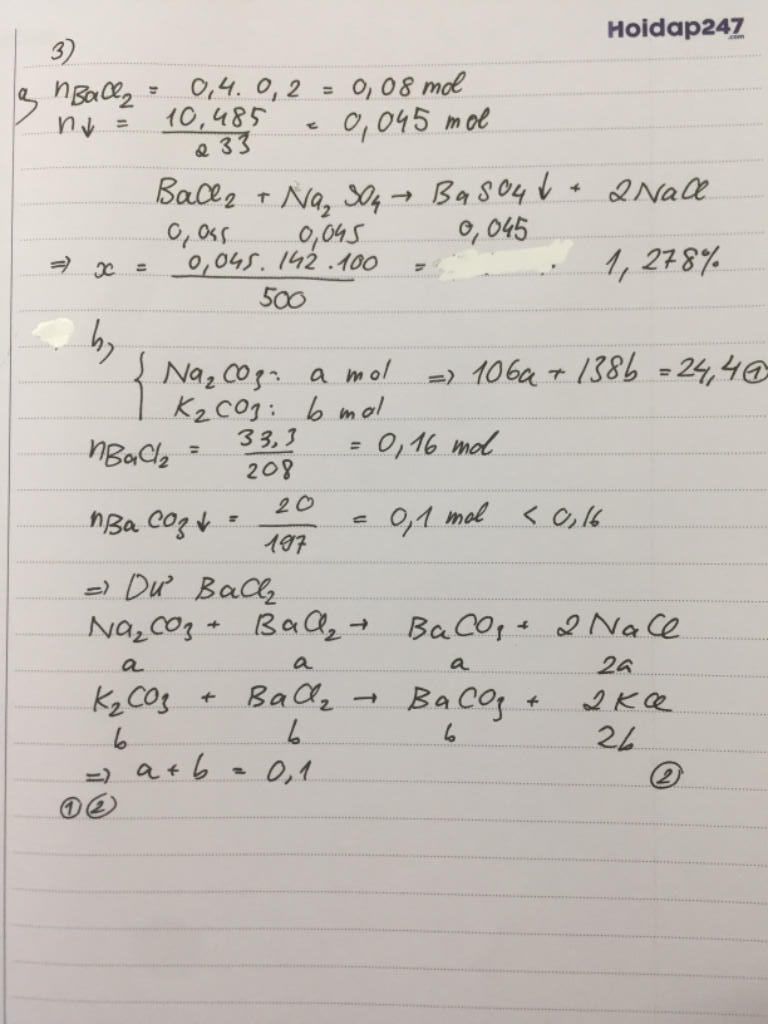 Hoidap247
.com
3)
a) nBaCl2 = 0,4. 0,2 = 0,08 mol
n↓ = 10,485 / 233 = 0,045 mol
BaCl2 + Na2SO4 → BaSO4↓ + 2NaCl
0,045 0,045 0,045
⇒ x = 0,045. 142 .100 / 500 = 1,278%
b,
{ Na2CO3: a mol ⇒ 106a + 138b = 24,4 ①
K2CO3: b mol
nBaCl2 = 33,3 / 208 = 0,16 mol
nBaCO3↓ = 20 / 197 = 0,1 mol < 0,16
⇒ Dư BaCl2
Na2CO3 + BaCl2 → BaCO3 + 2NaCl
a a a 2a
K2CO3 + BaCl2 → BaCO3 + 2KCl
b b b 2b
⇒ a + b = 0,1 ②
① ②